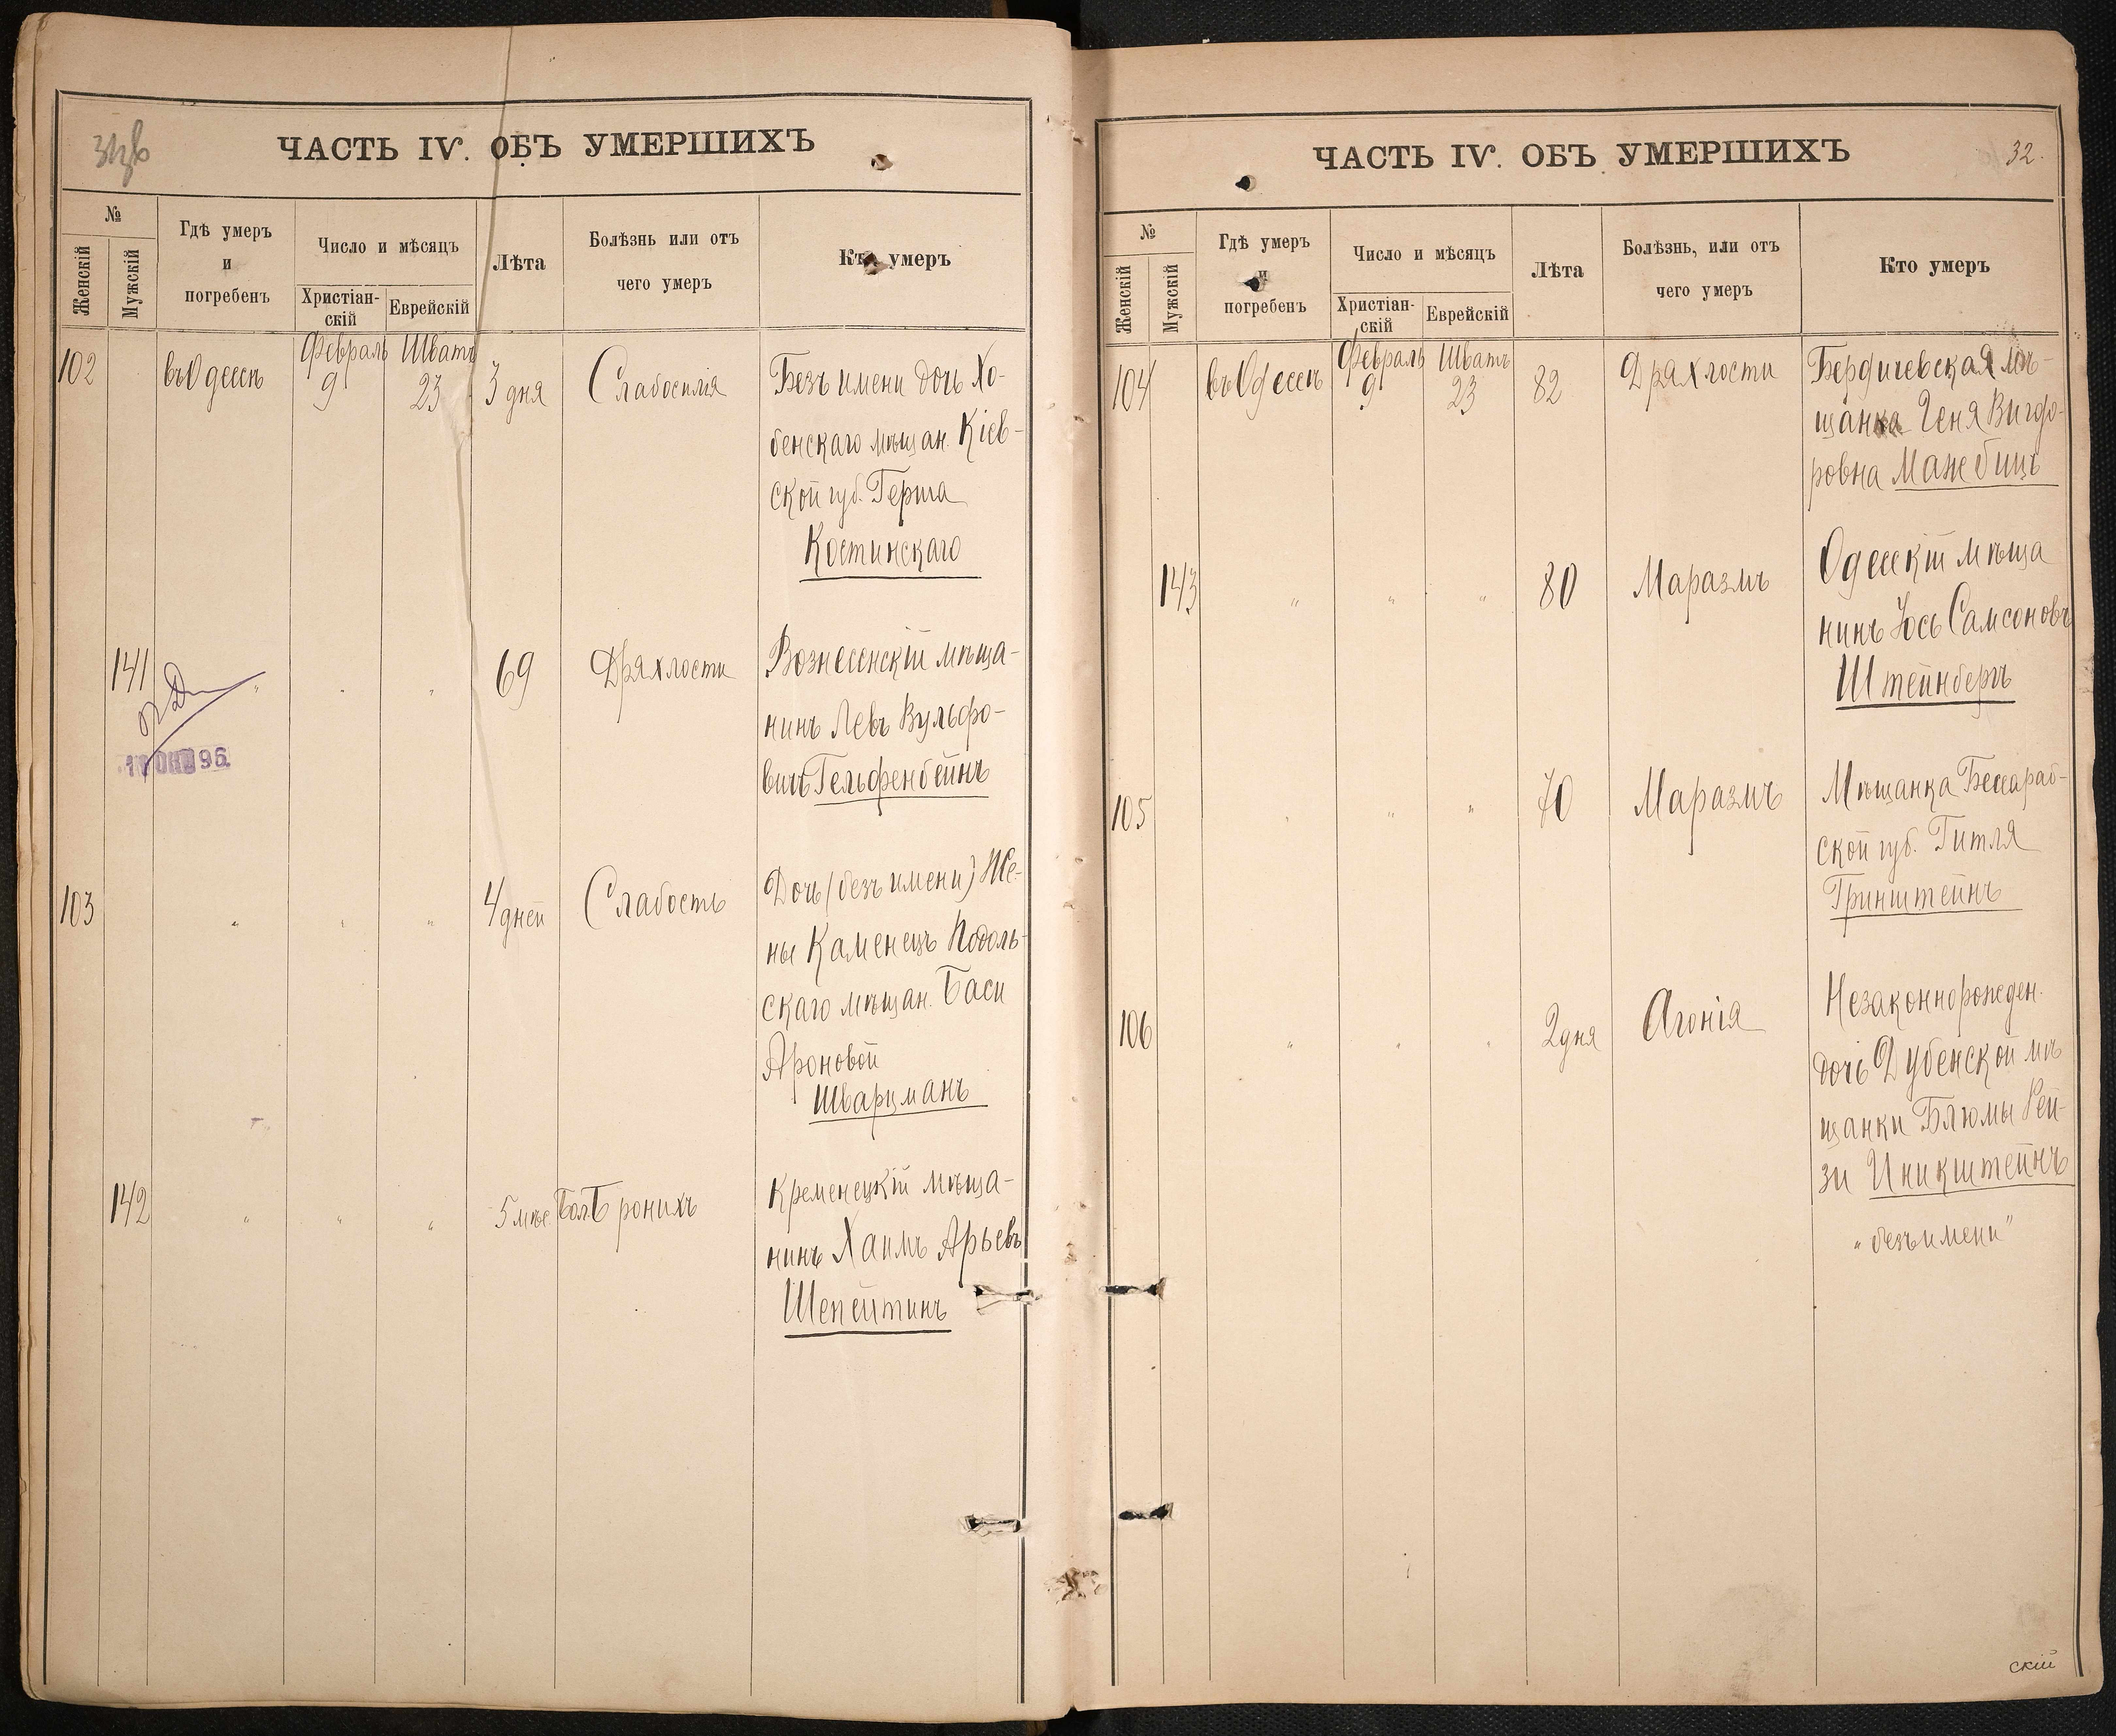 ЧАСТЬ IV. ОБЪ УМЕРШИХЪ
№
Женскій
Мужскій
Гдѣ умеръ
и
погребенъ
Число и мѣсяцъ
Христіан-
скій
Еврейскій
Лѣта
Болѣзнь или отъ
чего умеръ
Кто умеръ
Февраль Шватъ
102 въ Одессѣ 9 23 3 дня Слабосилія Безъ имени дочь Хо-
бенскаго мѣщан. Кіев-
ской губ. Герша
Костинскаго
141 " " " 69 Дряхлости Вознесенскій мѣща-
нинъ Левъ Вульфо-
вичъ Гельфенбейнъ
96
103 " " " 4 дней Слабость Дочь (безъ имени) Же-
ны Каменецъ Подоль-
скаго мѣщан. Баси
Ароновой
Шварцманъ
142 " " " 5 мѣс. Бол. Бронихъ Кременецкій мѣща-
нинъ Хаимъ Арьевъ
Шепейтинъ
ЧАСТЬ IV. ОБЪ УМЕРШИХЪ
32.
№
Женскій
Мужскій
Гдѣ умеръ
и
погребенъ
Число и мѣсяцъ
Христіан-
скій
Еврейскій
Лѣта
Болѣзнь, или отъ
чего умеръ
Кто умеръ
Февраль Шватъ
104 въ Одессѣ 9 23 82 Дряхлости Бердичевская мѣ-
щанка Геня Вигдо-
ровна Мажбицъ
143 " " " 80 Маразмъ Одесскій мѣща
нинъ Юсь Самсоновъ
Штейнбергъ
105 " " " 70 Маразмъ Мѣщанка Бессараб-
ской губ. Гитля
Гринштейнъ
106 " " " 2 дня Агонія Незаконнорожден.
дочь Дубенской мѣ
щанки Блюмы Рей-
зи Иникштейнъ
"безъ имени"
скій